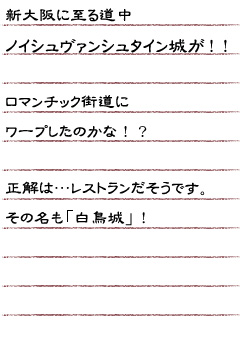 新大阪に至る道中
ノイシュヴァンシュタイン城が！！
ロマンチック街道に
ワープしたのかな！？
正解は…レストランだそうです。
その名も「白鳥城」！